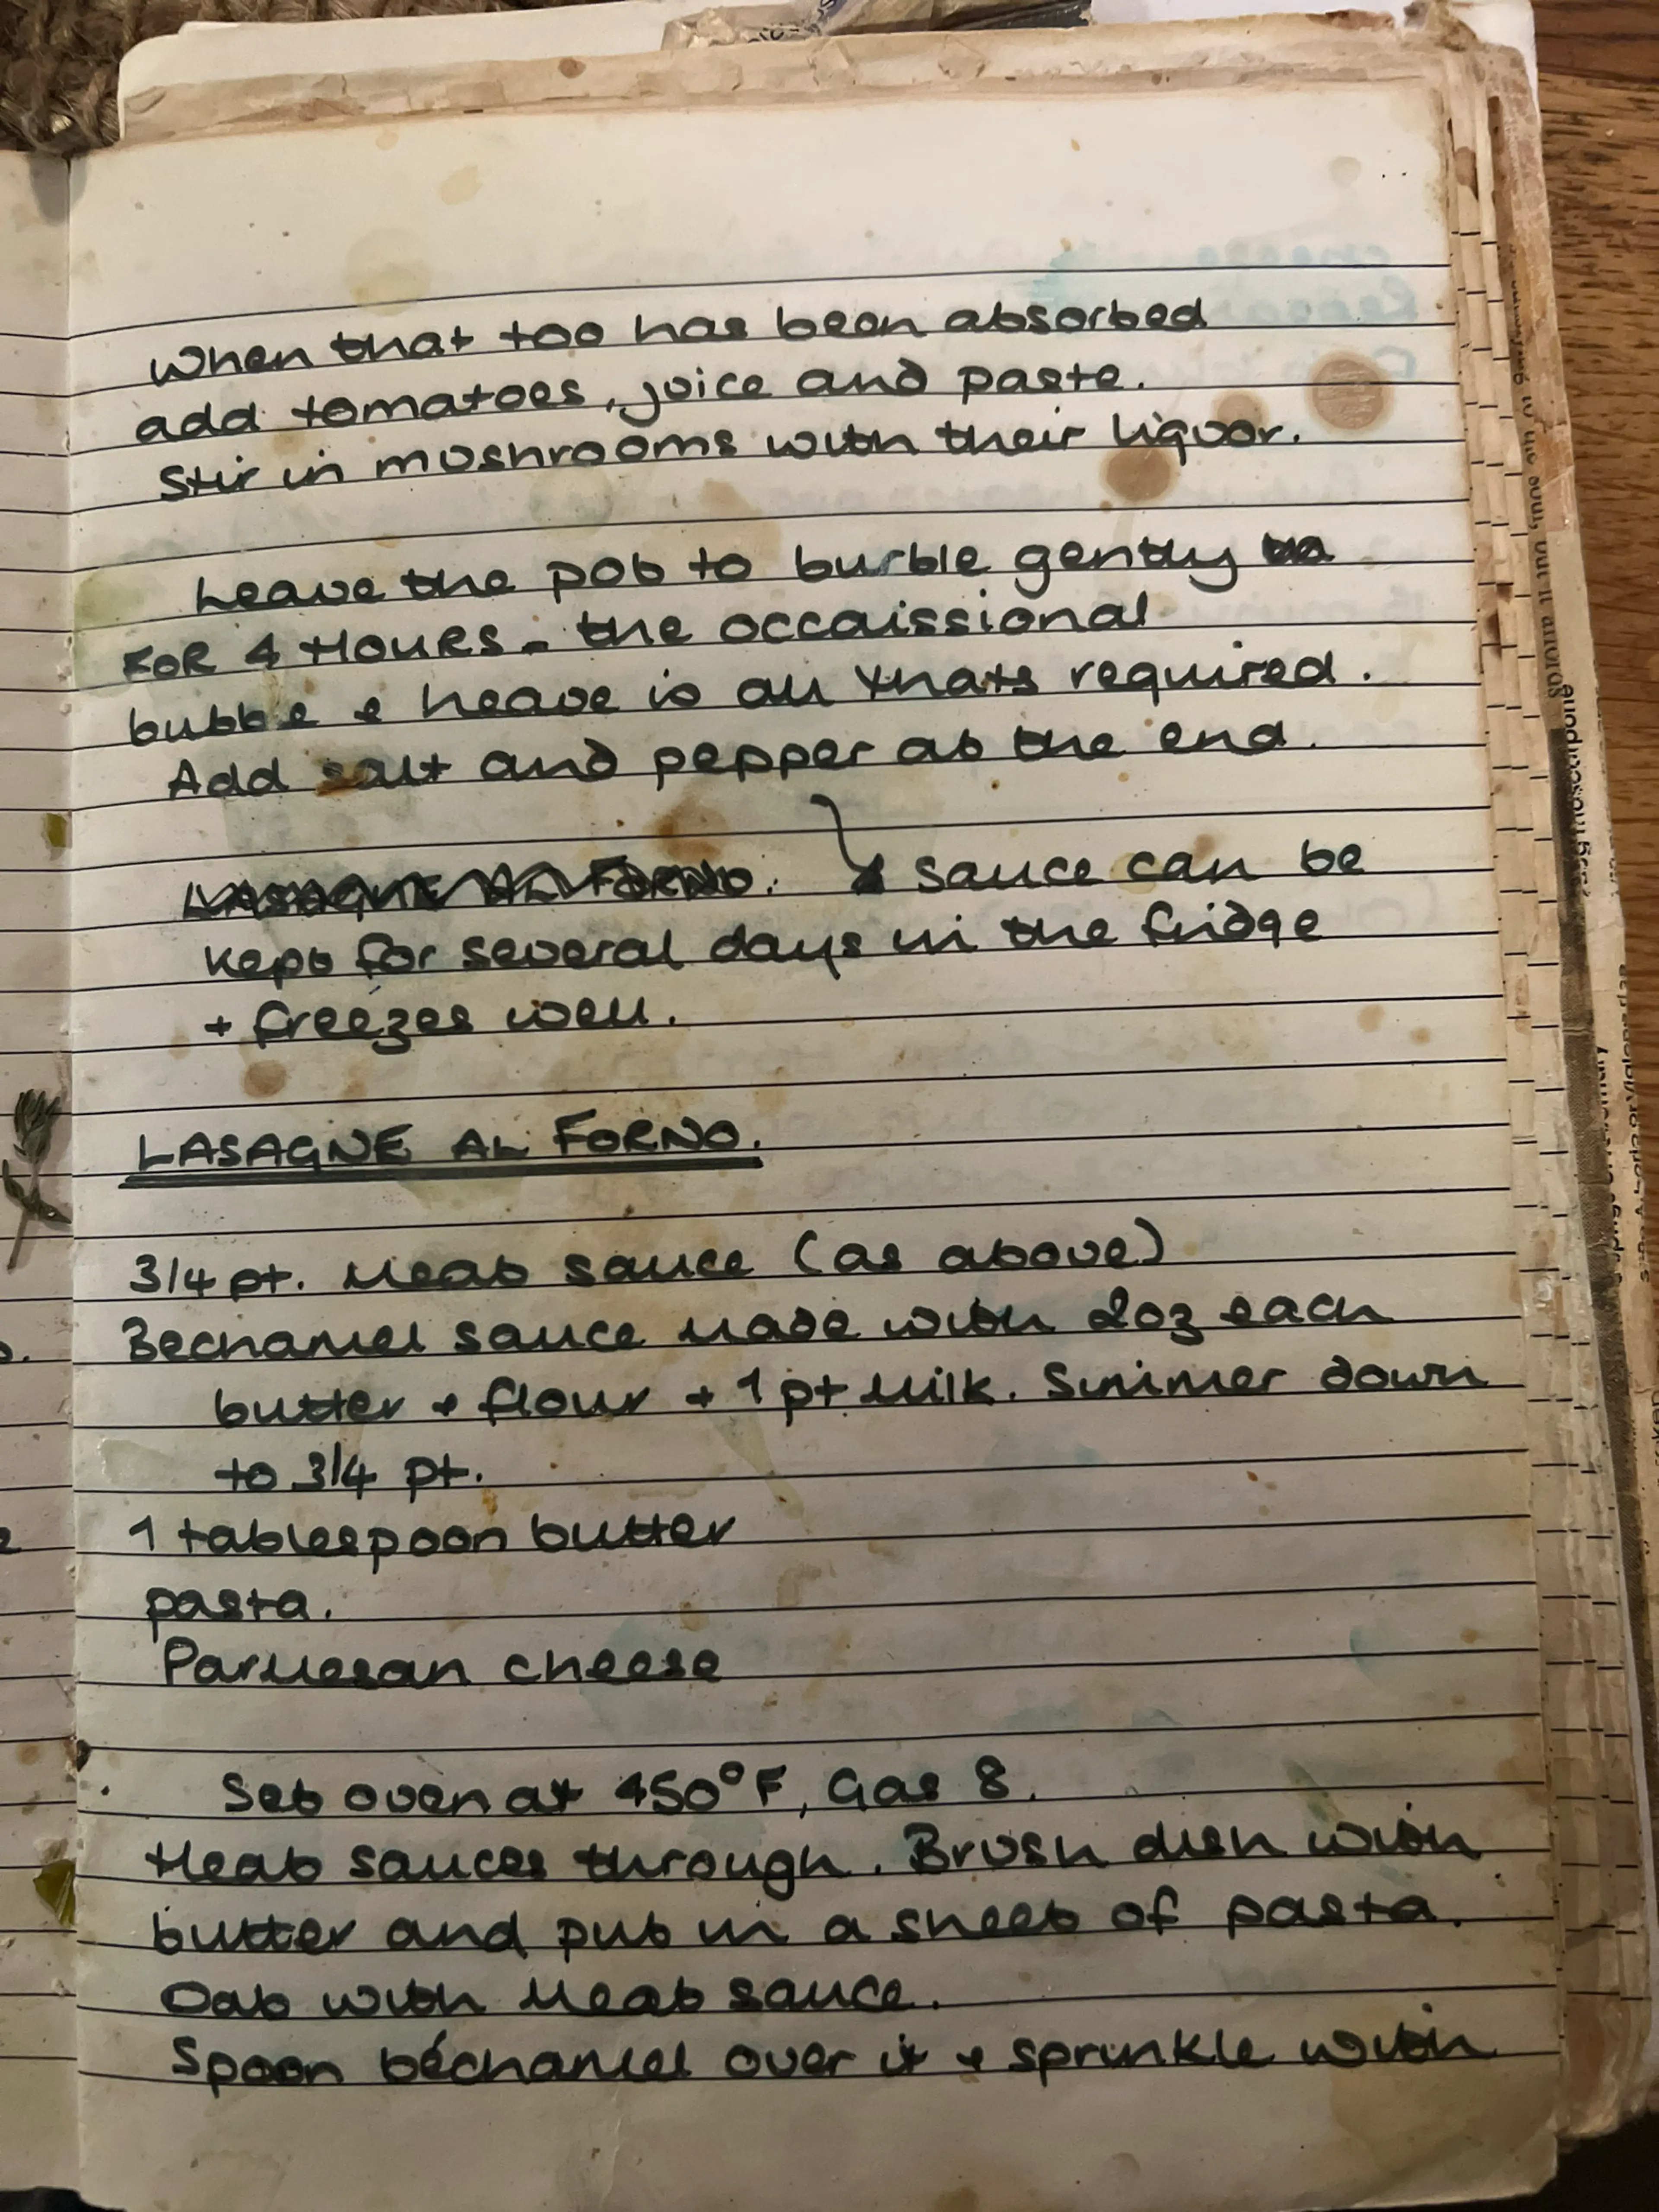 When that too has been absorbed
add tomatoes, juice and paste.
Stir in mushrooms with their liquor.
Leave the pot to burble gently
FOR 4 HOURS - the occaissional
bubble & heave is all thats required.
Add salt and pepper at the end.
LASAGNE AL FORNO. sauce can be
kept for several days in the fridge
+ freezes well.
LASAGNE AL FORNO.
3/4 pt. Meat sauce (as above)
Bechamel sauce made with 2oz each
butter + flour + 1 pt Milk. Simmer down
to 3/4 pt.
1 tablespoon butter
pasta.
Parmesan cheese
Set oven at 450°F, Gas 8.
Heat sauces through. Brush dish with
butter and put in a sheet of pasta.
Dab with Meat sauce.
Spoon béchamel over it & sprinkle with